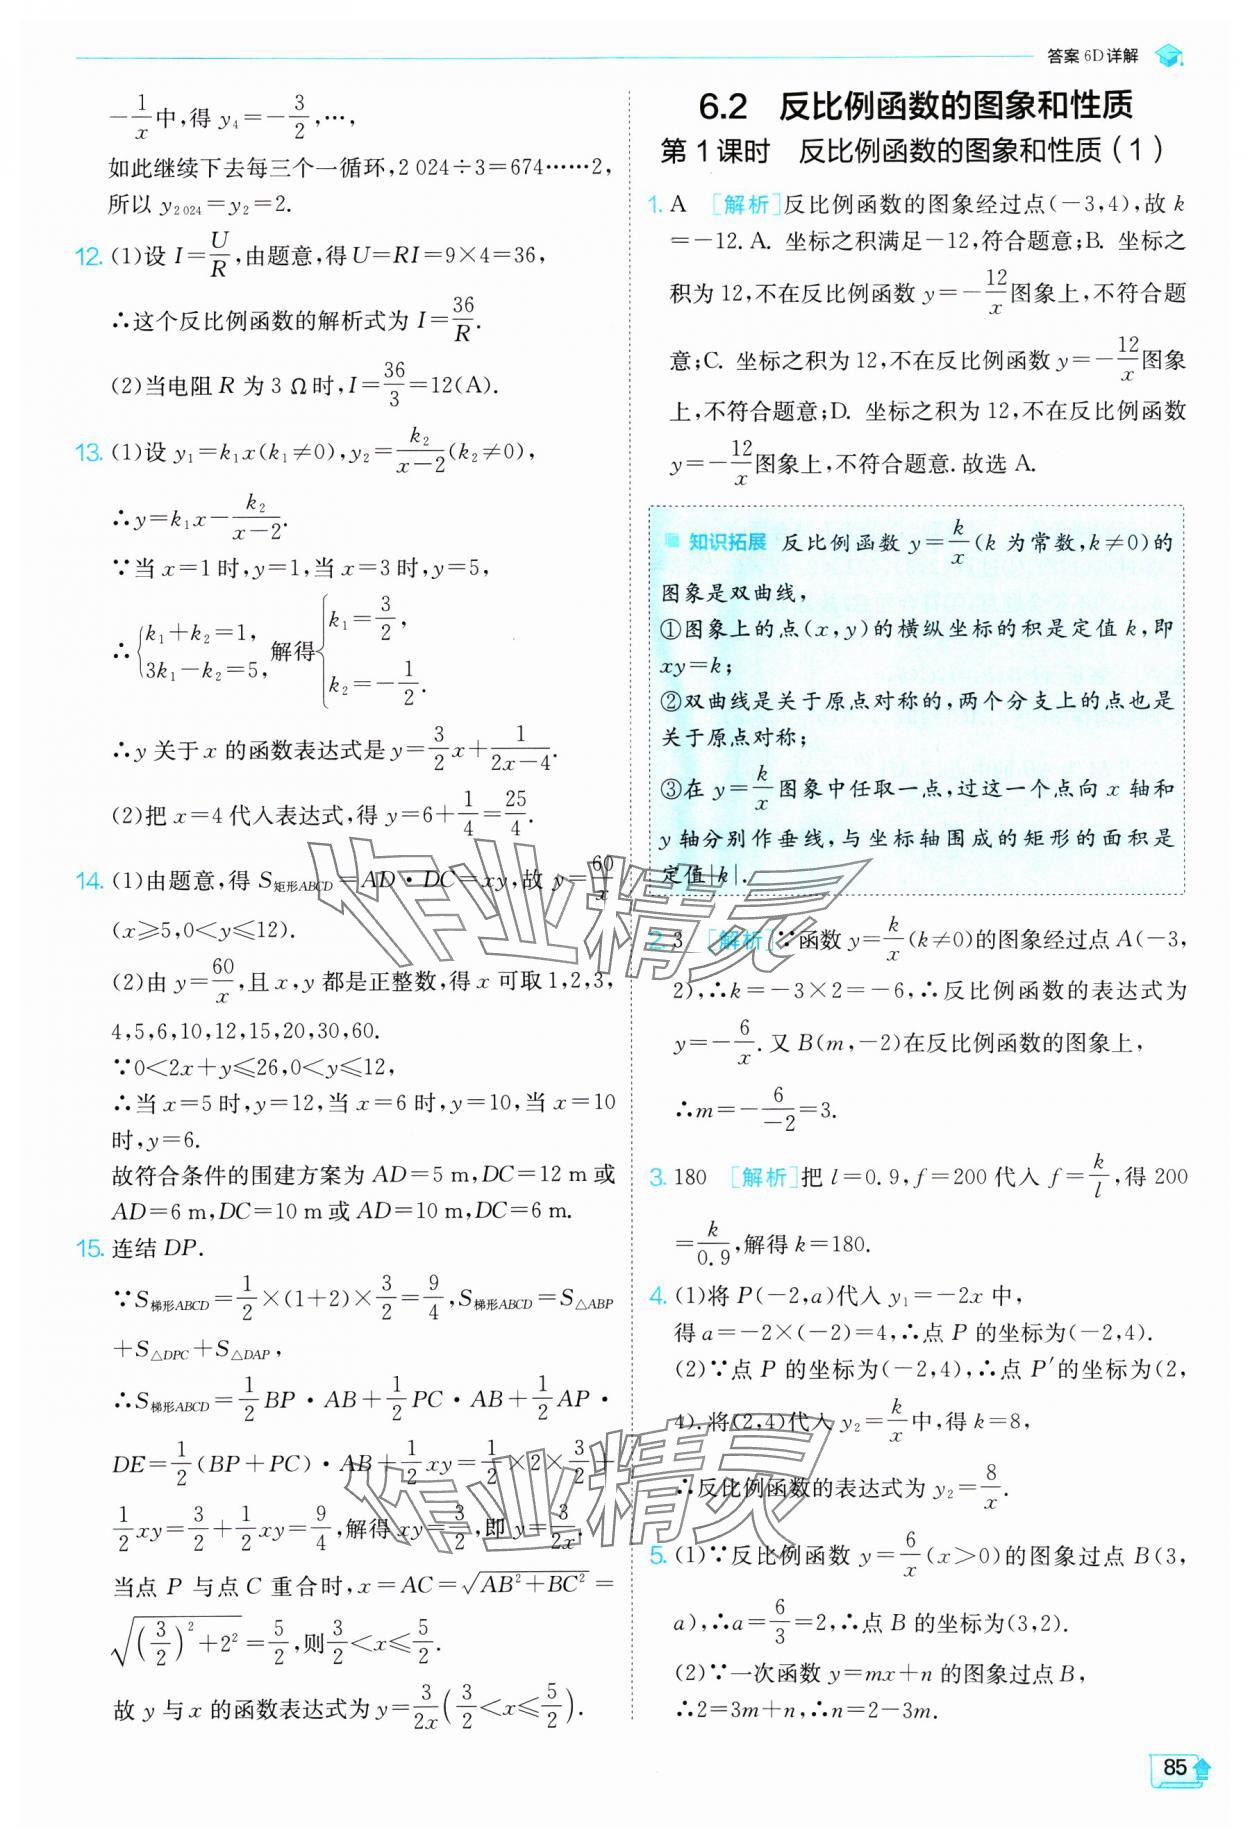 答案 6D详解
-1/x中,得 y₄=-3/2,…,
如此继续下去每三个一循环,2 024÷3=674……2,
所以 y₂₀₂₄=y₂=2.
12. (1)设 I=U/R,由题意,得U=RI=9×4=36,
∴这个反比例函数的解析式为 I=36/R.
(2)当电阻 R 为 3 Ω时,I=36/3=12(A).
13. (1)设 y₁=k₁x(k₁≠0),y₂=k₂/(x-2)(k₂≠0),
∴y=k₁x-k₂/(x-2).
∵当 x=1 时,y=1,当 x=3 时,y=5,
∴{k₁+k₂=1, 3k₁-k₂=5, 解得{k₁=3/2, k₂=-1/2.
∴y 关于 x 的函数表达式是 y=3/2x+1/(2x-4).
(2)把 x=4 代入表达式,得 y=6+1/4=25/4.
14. (1)由题意,得 S矩形ABCD=AD·DC=xy,故 y=60/x
(x≥5,0<y≤12).
(2)由 y=60/x,且 x,y 都是正整数,得 x 可取 1,2,3,
4,5,6,10,12,15,20,30,60.
∵0<2x+y≤26,0<y≤12,
∴当 x=5 时,y=12,当 x=6 时,y=10,当 x=10
时,y=6.
故符合条件的围建方案为 AD=5 m,DC=12 m 或
AD=6 m,DC=10 m 或 AD=10 m,DC=6 m.
15. 连结 DP.
∵S梯形ABCD=1/2×(1+2)×3/2=9/4,S梯形ABCD=S△ABP
+S△DPC+S△DAP,
∴S梯形ABCD=1/2BP·AB+1/2PC·AB+1/2AP·
DE=1/2(BP+PC)·AB+1/2xy=1/2×2×3/2+
1/2xy=3/2+1/2xy=9/4,解得 xy=3/2,即 y=3/2x.
当点 P 与点 C 重合时,x=AC=√(AB²+BC²)=
√((3/2)²+2²)=5/2,则3/2<x≤5/2.
故 y 与 x 的函数表达式为 y=3/2x(3/2<x≤5/2).
6.2 反比例函数的图象和性质
第1课时 反比例函数的图象和性质(1)
1. A [解析]反比例函数的图象经过点(-3,4),故 k
=-12.A. 坐标之积满足-12,符合题意;B. 坐标之
积为 12,不在反比例函数 y=-12/x图象上,不符合题
意;C. 坐标之积为 12,不在反比例函数 y=-12/x图象
上,不符合题意;D. 坐标之积为 12,不在反比例函数
y=-12/x图象上,不符合题意.故选 A.
知识拓展 反比例函数 y=k/x(k 为常数,k≠0)的
图象是双曲线,
①图象上的点(x,y)的横纵坐标的积是定值 k,即
xy=k;
②双曲线是关于原点对称的,两个分支上的点也是
关于原点对称;
③在 y=k/x图象中任取一点,过这一个点向 x 轴和
y 轴分别作垂线,与坐标轴围成的矩形的面积是
定值|k|.
2. 3 [解析]∵函数 y=k/x(k≠0)的图象经过点 A(-3,
2),∴k=-3×2=-6,∴反比例函数的表达式为
y=-6/x.又 B(m,-2)在反比例函数的图象上,
∴m=-6/-2=3.
3. 180 [解析]把 l=0.9,f=200 代入 f=k/l,得 200
=k/0.9,解得 k=180.
4. (1)将 P(-2,a)代入 y₁=-2x 中,
得 a=-2×(-2)=4,∴点 P 的坐标为(-2,4).
(2)∵点 P 的坐标为(-2,4),∴点 P′的坐标为(2,
4).将(2,4)代入 y₂=k/x中,得 k=8,
∴反比例函数的表达式为 y₂=8/x.
5. (1)∵反比例函数 y=6/x(x>0)的图象过点 B(3,
a),∴a=6/3=2,∴点 B 的坐标为(3,2).
(2)∵一次函数 y=mx+n 的图象过点 B,
∴2=3m+n,∴n=2-3m.
作业精灵
作业精灵
85